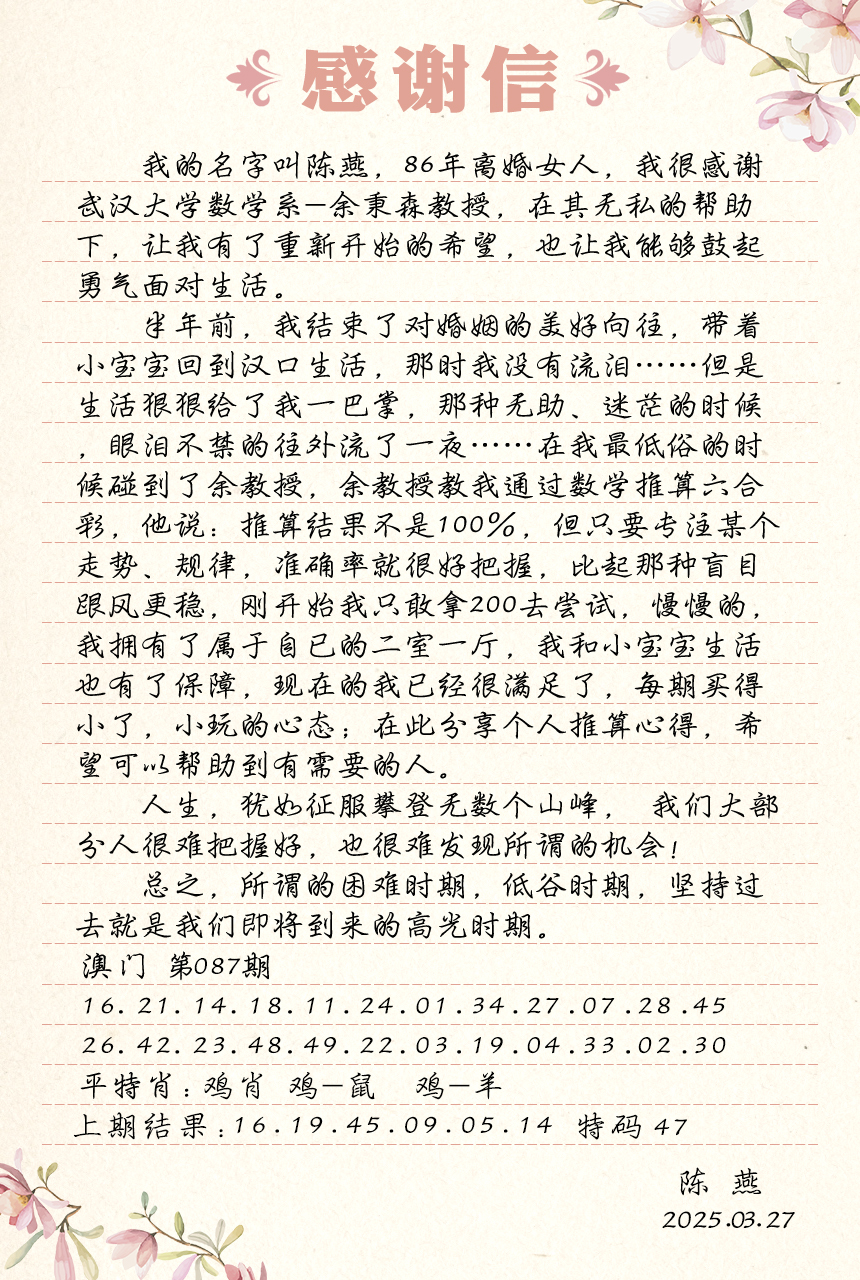 感谢信
我的名字叫陈燕，86年离婚女人，我很感谢
武汉大学数学系—余秉森教授，在其无私的帮助
下，让我有了重新开始的希望，也让我能够鼓起
勇气面对生活。
半年前，我结束了对婚姻的美好向往，带着
小宝宝回到汉口生活，那时我没有流泪……但是
生活狠狠给了我一巴掌，那种无助、迷茫的时候
，眼泪不禁的往外流了一夜……在我最低俗的时
候碰到了余教授，余教授教我通过数学推算六合
彩，他说：推算结果不是100%，但只要专注某个
走势、规律，准确率就很好把握，比起那种盲目
跟风更稳，刚开始我只敢拿200去尝试，慢慢的，
我拥有了属于自已的二室一厅，我和小宝宝生活
也有了保障，现在的我已经很满足了，每期买得
小了，小玩的心态；在此分享个人推算心得，希
望可以帮助到有需要的人。
人生，犹如征服攀登无数个山峰， 我们大部
分人很难把握好，也很难发现所谓的机会！
总之，所谓的困难时期，低谷时期，坚持过
去就是我们即将到来的高光时期。
澳门 第087期
16.21.14.18.11.24.01.34.27.07.28.45
26.42.23.48.49.22.03.19.04.33.02.30
平特肖：鸡肖 鸡—鼠 鸡—羊
上期结果：16.19.45.09.05.14 特码 47
陈 燕
2025.03.27